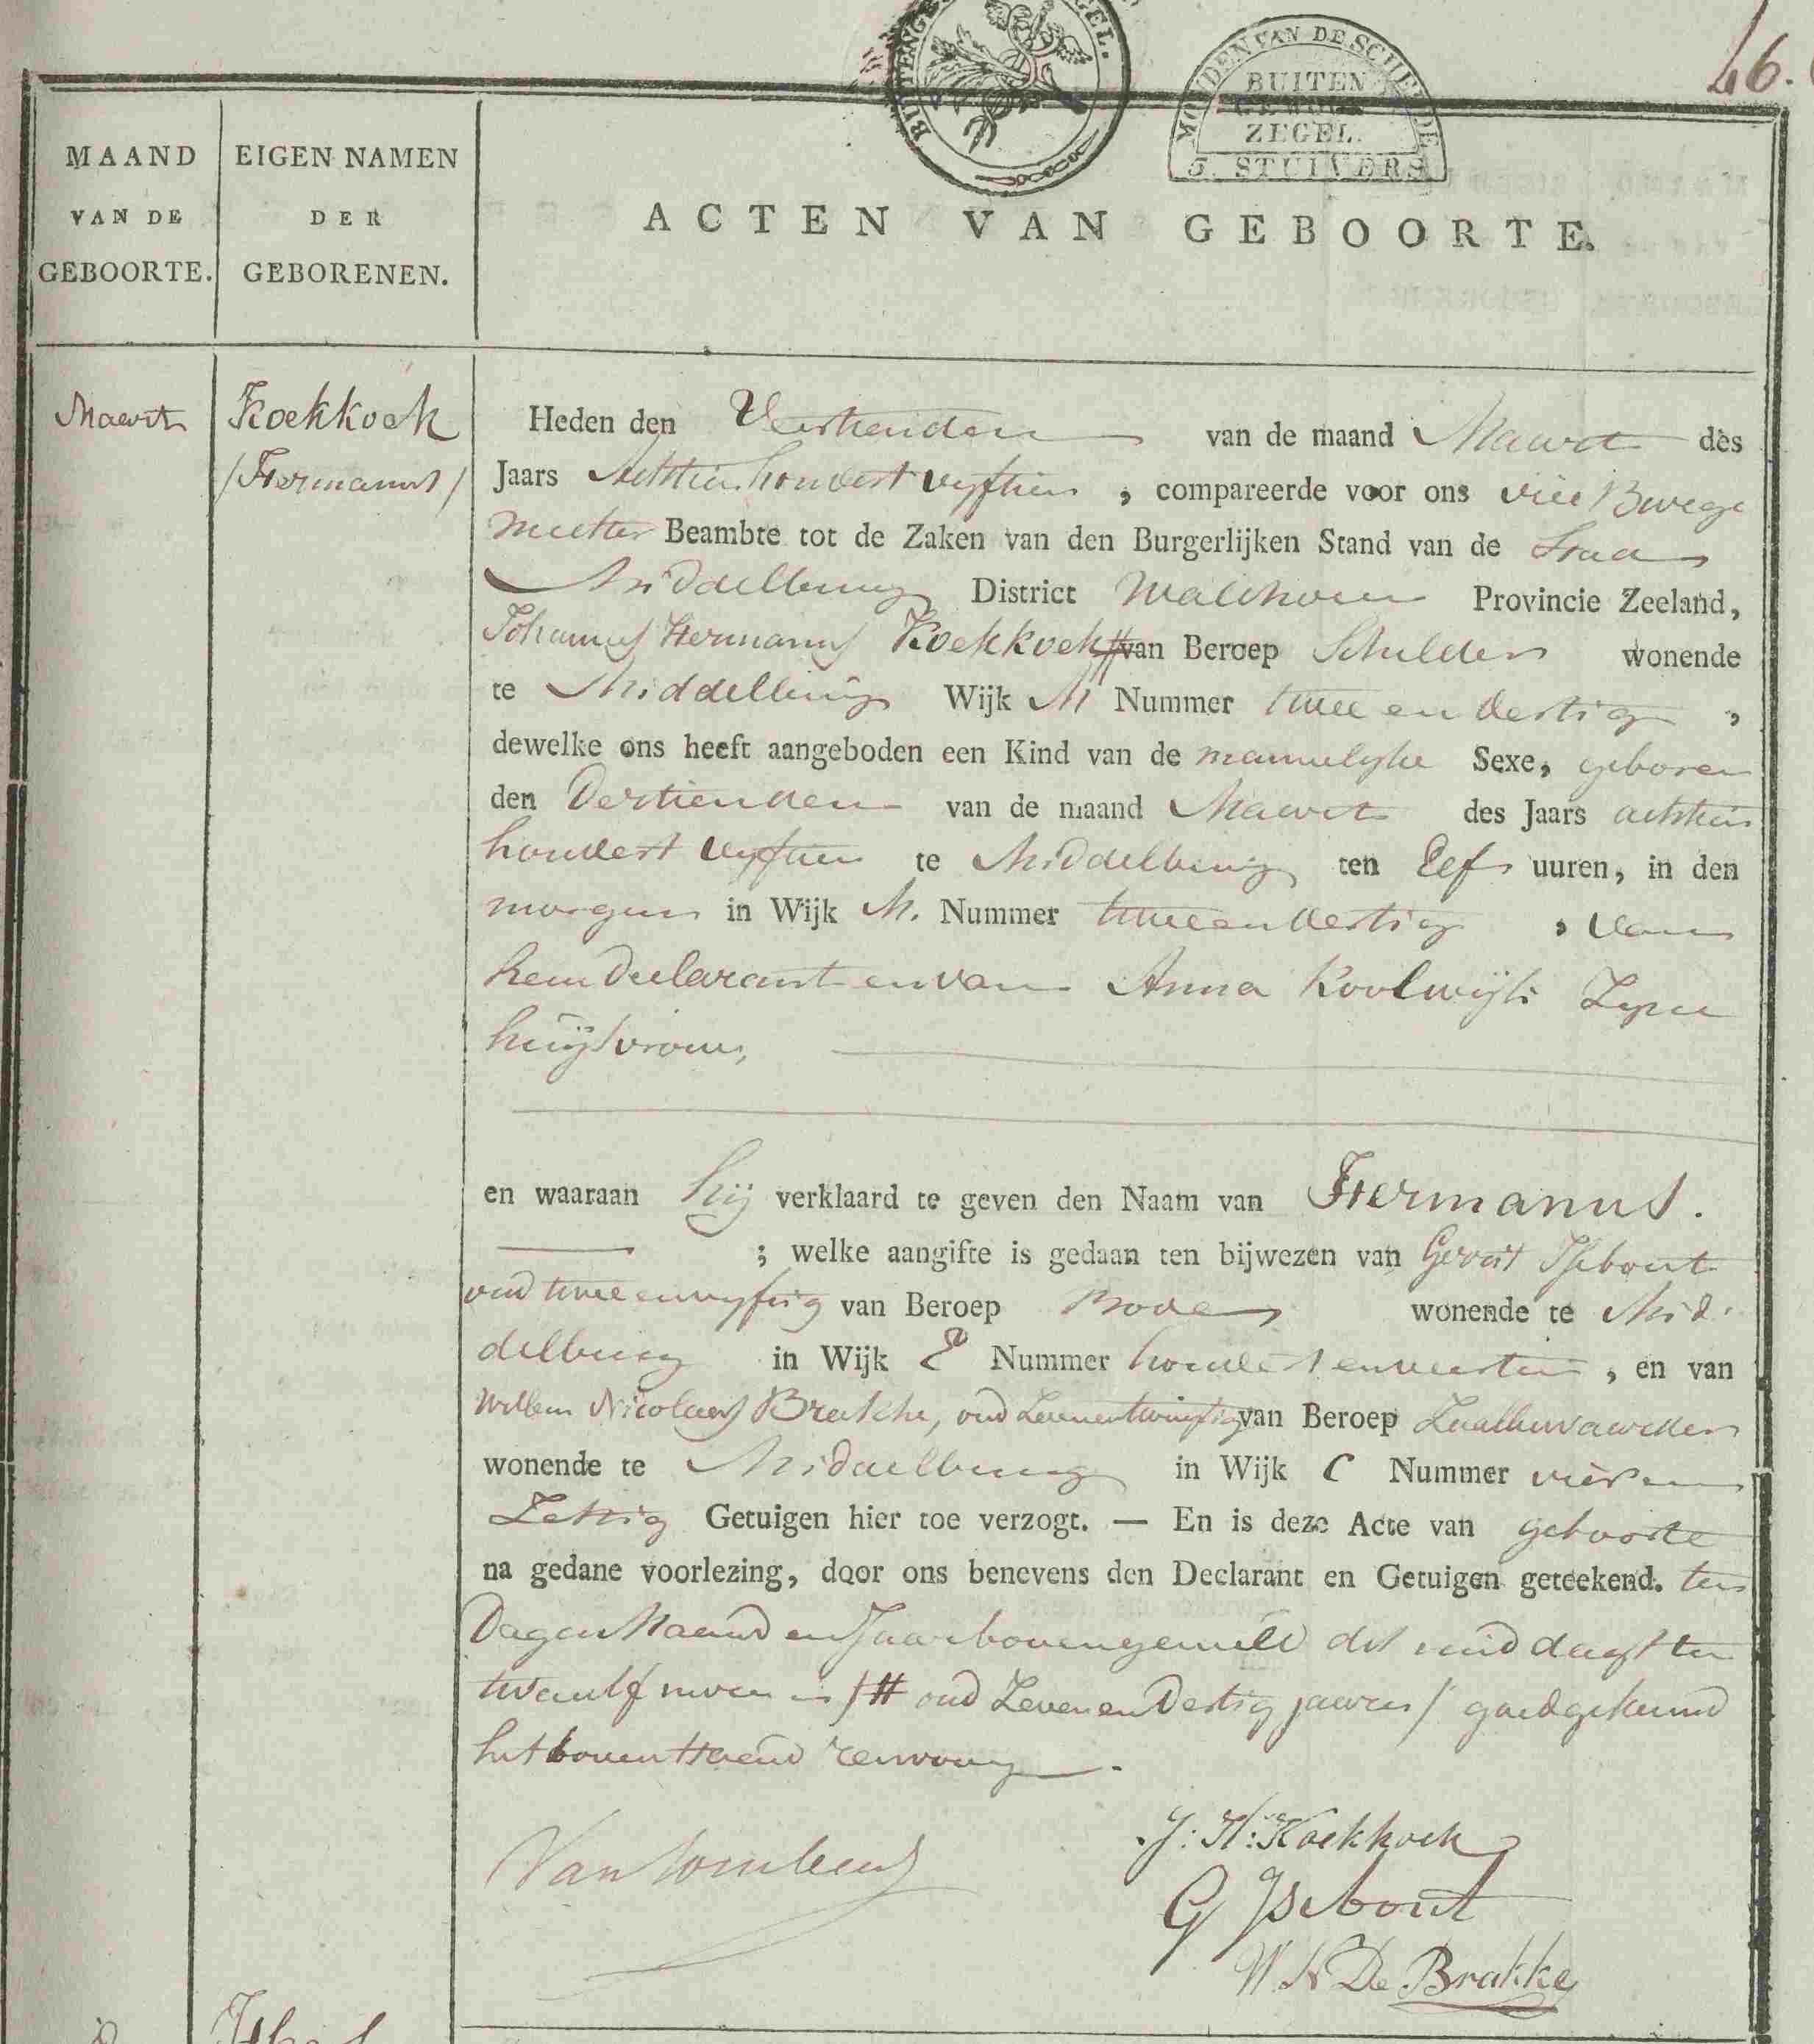 46.
BUITENGE
GEL.
MONDEN VAN DE SCHELDE
BUITEN
GEWOON
ZEGEL.
5. STUIVERS
MAAND
VAN DE
GEBOORTE.
EIGEN NAMEN
DER
GEBORENEN.
ACTEN VAN GEBOORTE.
Maert
Koekkoek
/Hermanus/
Heden den Veertienden van de maand Maert des
Jaars Achttien hondert vyftien, compareerde voor ons vice Burge
meester Beambte tot de Zaken van den Burgerlijken Stand van de Stad
Middelburg District Walcheren Provincie Zeeland,
Johannes Hermanus Koekkoek # van Beroep Schilder wonende
te Middelburg Wijk M Nummer twee en dertig,
dewelke ons heeft aangeboden een Kind van de mannelyke Sexe, geboren
den Dertienden van de maand Maert des Jaars achttien
hondert vyftien te Middelburg ten Elf uuren, in den
morgen in Wijk M. Nummer twee en dertig, van
hem declarant en van Anna Koolwijk Zyne
huysvrouw,
en waaraan hij verklaard te geven den Naam van Hermanus.
; welke aangifte is gedaan ten bijwezen van Gerrit IJsebout
oud twee en vyftig van Beroep Bode wonende te Mid
delburg in Wijk E Nummer hondert en veertien, en van
Willem Nicolaas Brakke, oud Zevenentwintig van Beroep Zaalbewaarder
wonende te Middelburg in Wijk C Nummer vier en
Zestig Getuigen hier toe verzogt. — En is deze Acte van geboorte
na gedane voorlezing, door ons benevens den Declarant en Getuigen geteekend. ten
Dage Maand en Jaar bovengemeld des middags ten
twaalf uuren /# oud Zeven en Dertig jaaren/ goedgekeurd
het bovenstaand renvooy.
J: H: Koekkoek
G IJsebout
W N De Brakke